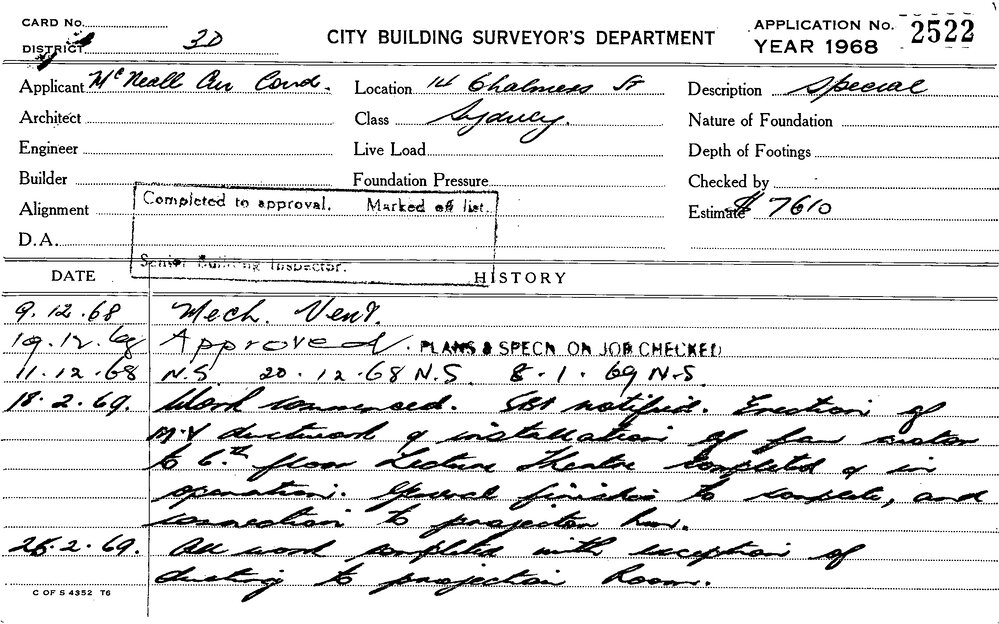 CARD No.
DISTRICT 3D
CITY BUILDING SURVEYOR'S DEPARTMENT
APPLICATION No. 2522
YEAR 1968
Applicant McNeall Air Cond. Location 14 Chalmers St Description Special
Architect Class Sydney. Nature of Foundation
Engineer Live Load Depth of Footings
Builder Foundation Pressure Checked by
Completed to approval. Marked off list.
Alignment Estimate $ 7610
D.A.
Senior Building Inspector.
DATE HISTORY
9.12.68 Mech. Vent.
19.12.68 Approved. PLANS & SPECN ON JOB CHECKED
11.12.68 N.S. 20.12.68 N.S. 8.1.69 N.S.
18.2.69. Work commenced. SBI notified. Erection of
M.V ductwork & installation of fan
to 6th floor Lecture Theatre completed & in
operation. General finishes to complete, and
connection to projection
26.2.69. All work completed with exception of
ducting to projection Room.
C OF S 4352 T6